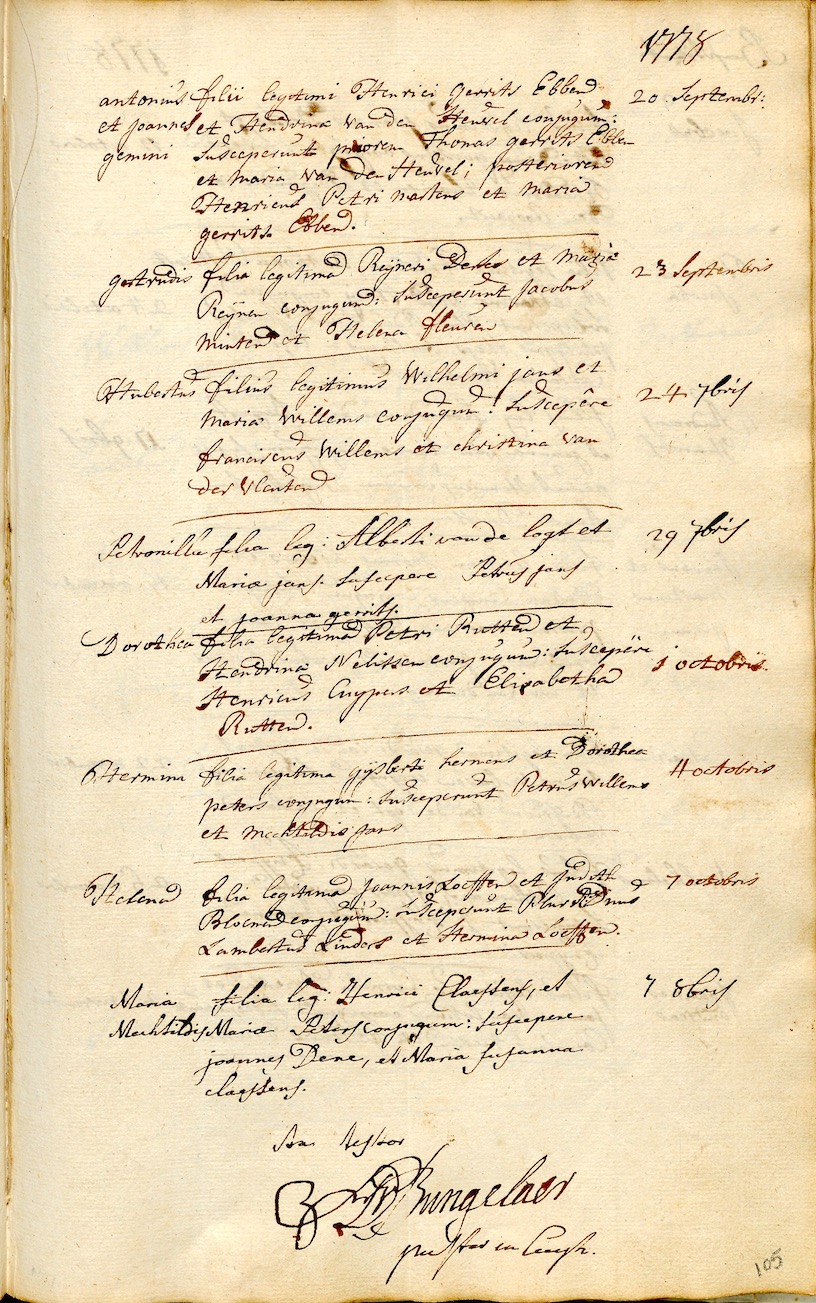 1778
antonius filii legitimi Henrici Gerrits Ebben 20 Septembr:
et joannes et Hendrina Van den Heuvel conjugum:
gemini Susceperunt priorem Thomas gerrits Ebben
et maria van den Heuvel; posteriorem
Henricus Petri martens et maria
gerrits Ebben.
gertrudis filia legitima Reijneri Derks et maria 23 Septembris
Reijnen conjugum: Susceperunt jacobus
minten et Helena fleuren
Hubertus filius legitimus Wilhelmi jans et 24 7bris
Maria Willems conjugum: Suscepêre
franciscus Willems et christina van
der Vleuten
Petronilla filia leg: Alberti van de logt et 29 7bris
Mariæ jans. Suscepere Petrus jans
et joanna gerrits.
Dorothea filia legitima Petri Rutten et
Hendrina Nelissen conjugum: Suscepêre 1 octobris.
Henricus Cuypers et Elisabetha
Rutten.
Hermina filia legitima gijsberti hermens et Dorothea 4 octobris
peters conjugum: Susceperunt Petrus Willems
et mechtildis jans
Helena filia legitima joannis Loeffen et judith 7 octobris
Bloemen conjugum: Susceperunt Plur: R: Dnus
Lambertus Linders et Hermina Loeffen.
Maria filia leg: Henrici Claessens, et 7 8bris
Mechtildis Mariæ Peters conjugum: Suscepere
joannes Dene, et Maria susanna
claessens.
Ita testor
Bungelaer
pastor in Cuyk.
105